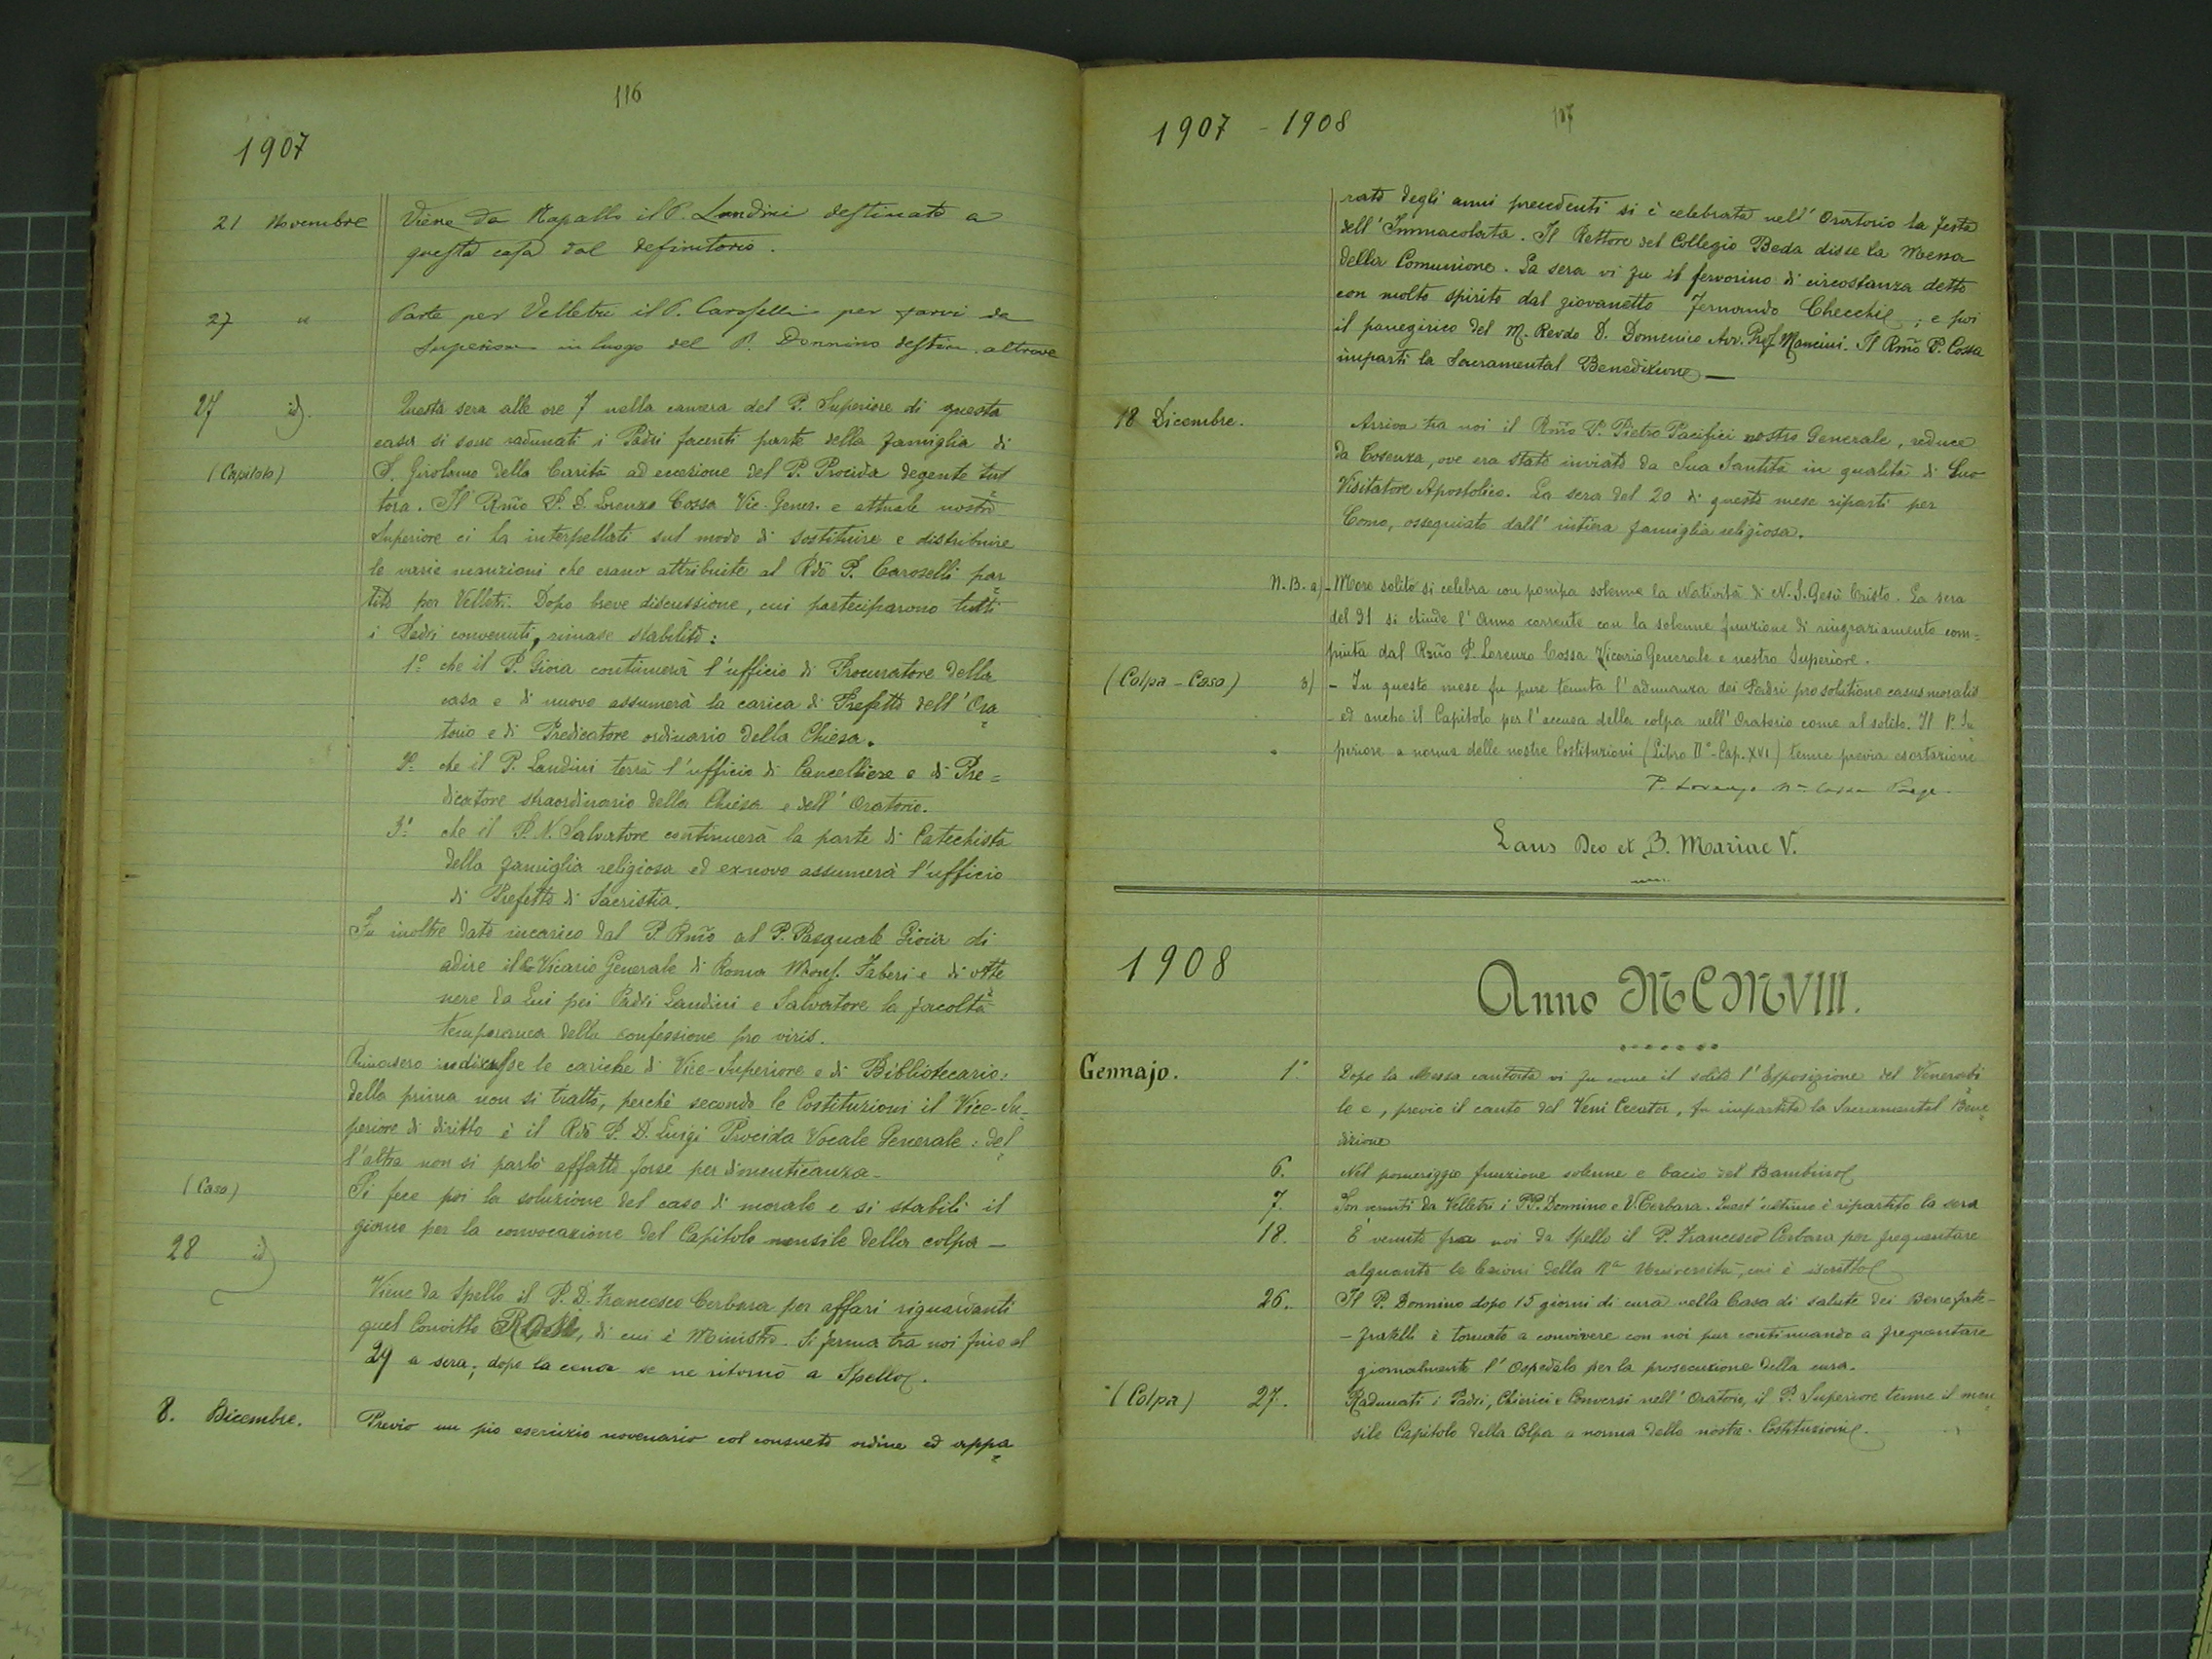 116
1907
21 Novembre Viene da Rapallo il P. Landini destinato a
questa casa dal definitorio.
27 " Parte per Velletri il P. Caroselli per farvi da
Superiore in luogo del P. Donnino destin. altrove
27 id. Questa sera alle ore 7 nella camera del P. Superiore di questa
casa si sono radunati i Padri facenti parte della famiglia di
(Capitolo) S. Girolamo della Carità ad eccezione del P. Procida degente tut
tora. Il Rmo P. D. Lorenzo Cossa Vic. Gener. e attuale nostro
Superiore ci ha interpellati sul modo di sostituire e distribuire
le varie mansioni che erano attribuite al Rdo P. Caroselli par
tito per Velletri. Dopo breve discussione, cui parteciparono tutti
i Padri convenuti, rimase stabilito:
1º che il P. Gioia continuerà l'ufficio di Procuratore della
casa e di nuovo assumerà la carica di Prefetto dell'Ora
torio e di Predicatore ordinario della Chiesa.
2º che il P. Landini terrà l'ufficio di Cancelliere e di Pre=
dicatore straordinario della Chiesa e dell'Oratorio.
3º che il P. N. Salvatore continuerà la parte di Catechista
della famiglia religiosa ed exnovo assumerà l'ufficio
di Prefetto di Sacristia.
Fu inoltre dato incarico dal P. Rmo al P. Pasquale Gioia di
adire il Vicario Generale di Roma Mons. Faberi e di otte
nere da Lui pei Padri Landini e Salvatore la facoltà
temporanea della confessione pro viris.
Rimasero indiscusse le cariche di Vice-Superiore e di Bibliotecario:
della prima non si trattò, perchè secondo le Costituzioni il Vice-Su-
periore di diritto è il Rdo P. D. Luigi Procida Vocale Generale: del
l'altra non si parlò affatto forse per dimenticanza -
(Caso) Si fece poi la soluzione del caso di morale e si stabilì il
giorno per la convocazione del Capitolo mensile della colpa -
28 id
Viene da Spello il P. D. Francesco Cerbara per affari riguardanti
quel Convitto Rossi, di cui è Ministro. Si ferma tra noi fino al
29 a sera; dopo la cena se ne ritornò a Spello.
8. Dicembre. Previo un pio esercizio novenario col consueto ordine ed appa
1907 - 1908
117
rato degli anni precedenti si è celebrata nell'Oratorio la festa
dell'Immacolata. Il Rettore del Collegio Beda disse la Messa
della Comunione. La sera vi fu il fervorino di circostanza detto
con molto spirito dal giovanetto Fernando Checchi; e poi
il panegirico del M. Revdo D. Domenico Avv. Prof. Mancini. Il Rmo P. Cossa
impartì la Sacramental Benedizione -
18 Dicembre. Arriva tra noi il Rmo P. Pietro Pacifici nostro Generale, reduce
da Cosenza, ove era stato inviato da Sua Santità in qualità di Suo
Visitatore Apostolico. La sera del 20 di questo mese ripartì per
Como, ossequiato dall'intiera famiglia religiosa.
N.B. a) - More solito si celebra con pompa solenne la Natività di N. S. Gesù Cristo. La sera
del 31 si chiude l'Anno corrente con la solenne funzione di ringraziamento com=
piuta dal Rmo P. Lorenzo Cossa Vicario Generale e nostro Superiore.
(Colpa - Caso) - In questo mese fu pure tenuta l'adunanza dei Padri pro solutione casus moralis
- ed anche il Capitolo per l'accusa della colpa nell'Oratorio come al solito. Il P. Su
periore a norma delle nostre Costituzioni (Libro IIº - Cap. XVI) tenne previa esortazione
P. Lorenzo Mª Cossa
Laus Deo et B. Mariae V.
1908
Anno MCMVIII.
Gennajo. 1º Dopo la Messa cantata vi fu come il solito l'Esposizione del Venerabi
le e, previo il canto del Veni Creator, fu impartita la Sacramental Bene
dizione
6. Nel pomeriggio funzione solenne e bacio del Bambino
7. Son venuti da Velletri i PP. Donnino e V. Cerbara. Quest'ultimo è ripartito la sera
18. È venuto fra noi da Spello il P. Francesco Cerbara per frequentare
alquanto le lezioni della Rª Università, cui è iscritto
26. Il P. Donnino dopo 15 giorni di cura nella Casa di salute dei Benefate-
- fratelli è tornato a convivere con noi pur continuando a frequentare
giornalmente l'Ospedale per la prosecuzione della cura.
(Colpa) 27. Radunati i Padri, Chierici e Conversi nell'Oratorio, il P. Superiore tenne il men
sile Capitolo della Colpa a norma delle nostre Costituzioni.